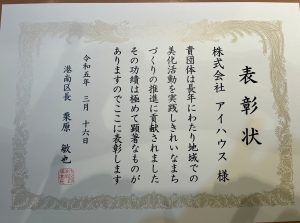 表彰状
株式会社 アイハウス 様
貴団体は長年にわたり地域での
美化活動を実践しきれいなまち
づくりの推進に貢献されました
その功績は極めて顕著なものが
ありますのでここに表彰します
令和五年 三月 十六日
港南区長 栗原 敏也